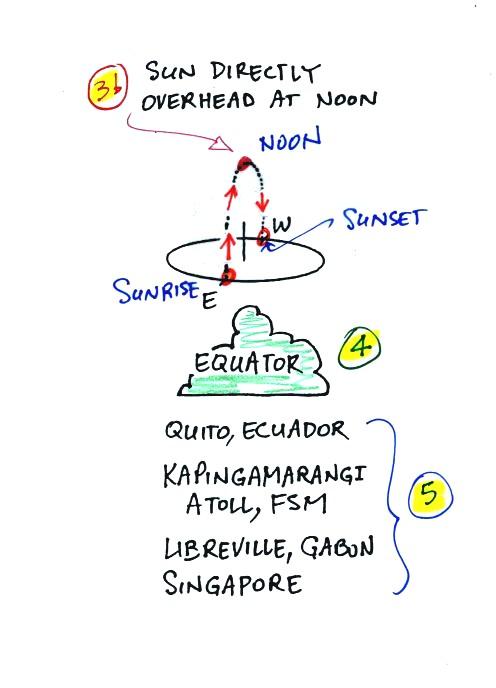 3b
SUN DIRECTLY
OVERHEAD AT NOON
NOON
W
SUNSET
SUNRISE
E
EQUATOR
4
QUITO, ECUADOR
KAPINGAMARANGI
ATOLL, FSM
5
LIBREVILLE, GABON
SINGAPORE